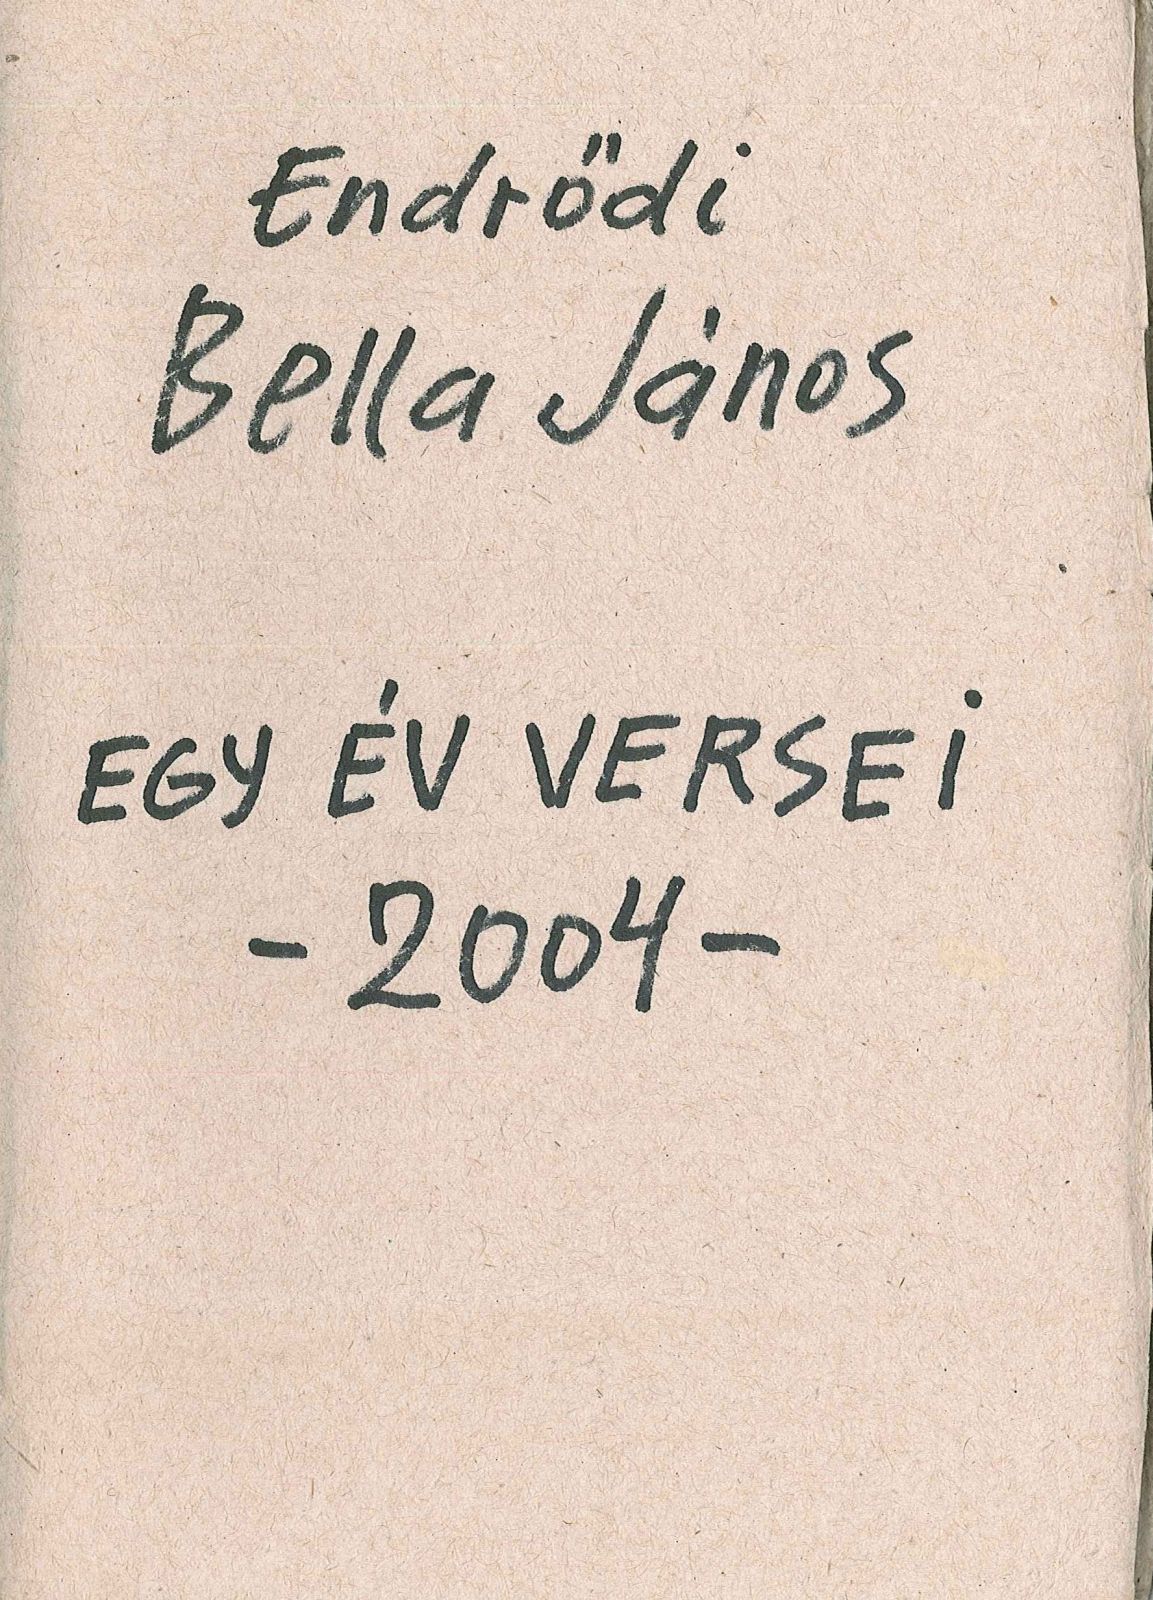 Endrődi
Bella János
EGY ÉV VERSEI
-2004-